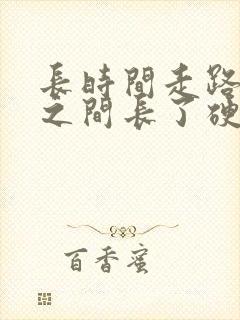 長時間走路
之間長了硬
百香蜜